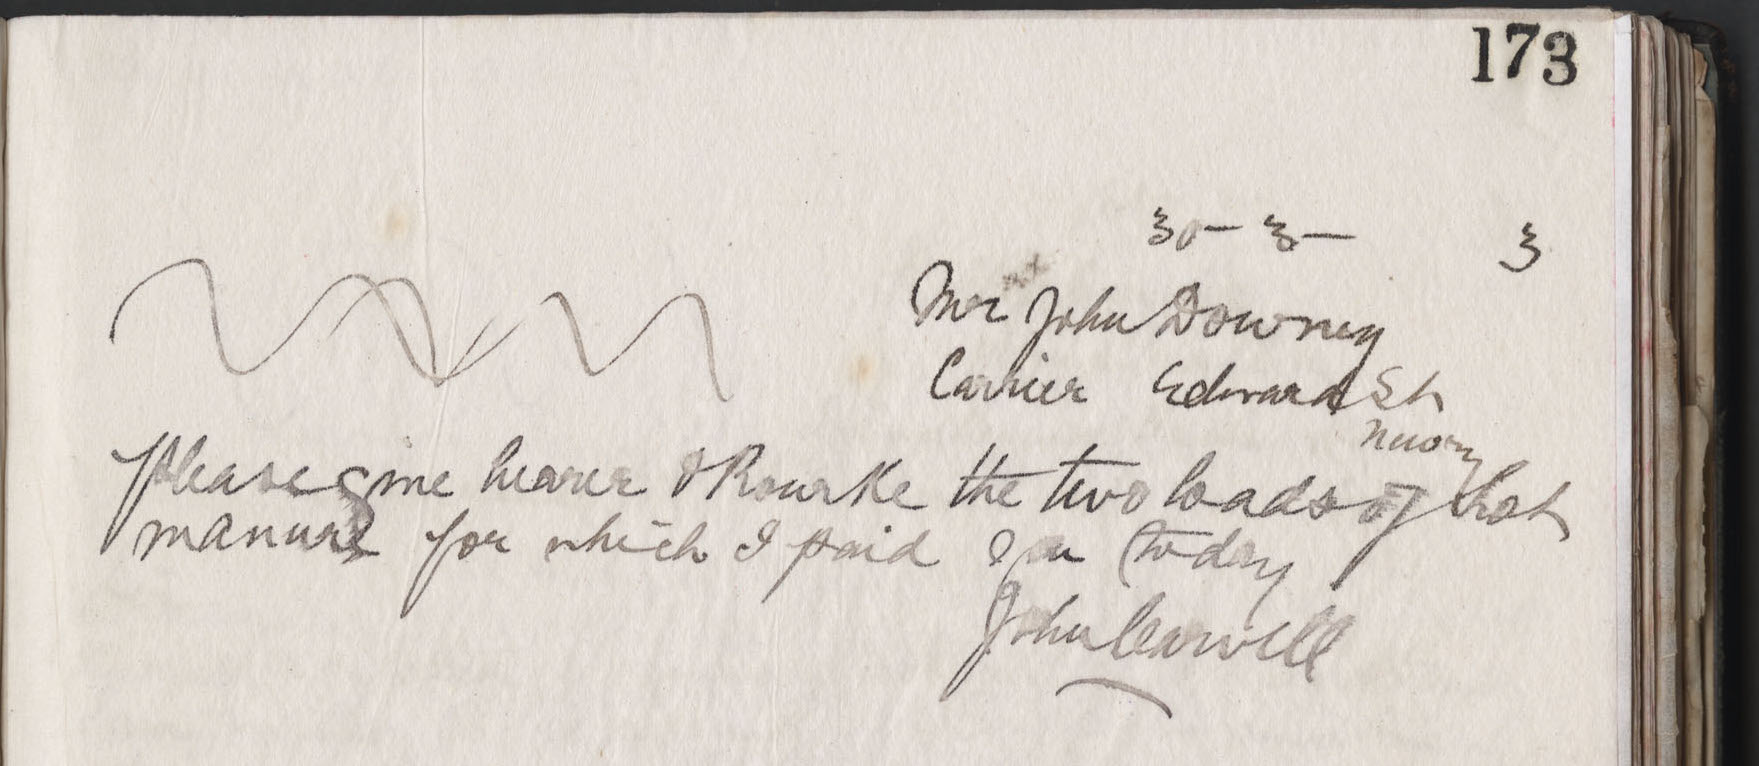 173
30 - 3 - 3
Mr John Downey
Carrier Edward St
Newry
Please give bearer O Rourke the two loads of that
manure for which I paid you today
John Carvill